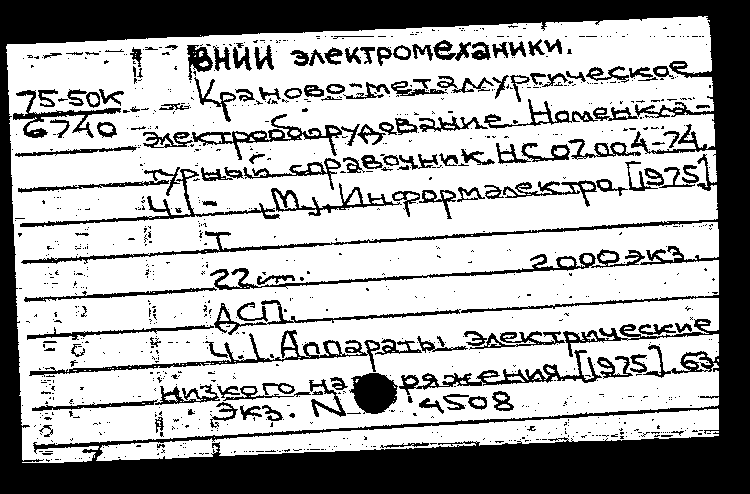 ВНИИ электромеханики.
75-50К Краново-металлургическое
6740 электрооборудование. Номенкла-
турный справочник. НС 07.004-74.
Ч.1- [М.], Информэлектро, [1975]
Т
22 см. 2000 экз.
ДСП.
Ч.1. Аппараты электрические
низкого напряжения. [1975]. 63с
Экз. N 14508
7